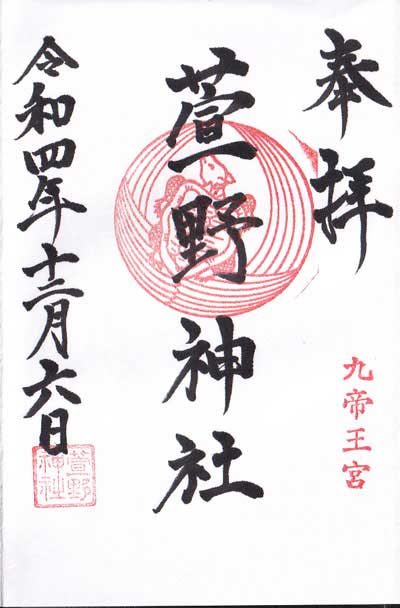 奉拝
九帝王宮
萱野神社
令和四年十二月六日
萱野
神社